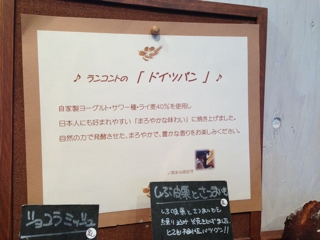 ♪ ラニコントの「ドイツパン」♪
自家製ヨーグルト・サワー種・ライ麦40％を使用し
日本人にも好まれやすい「まろやかな味わい」に焼き上げました。
自然の力で発酵させた、まろやかで、豊かな香りをお楽しみください。
ショコラミッシュ
しぶ皮栗とさつまいも